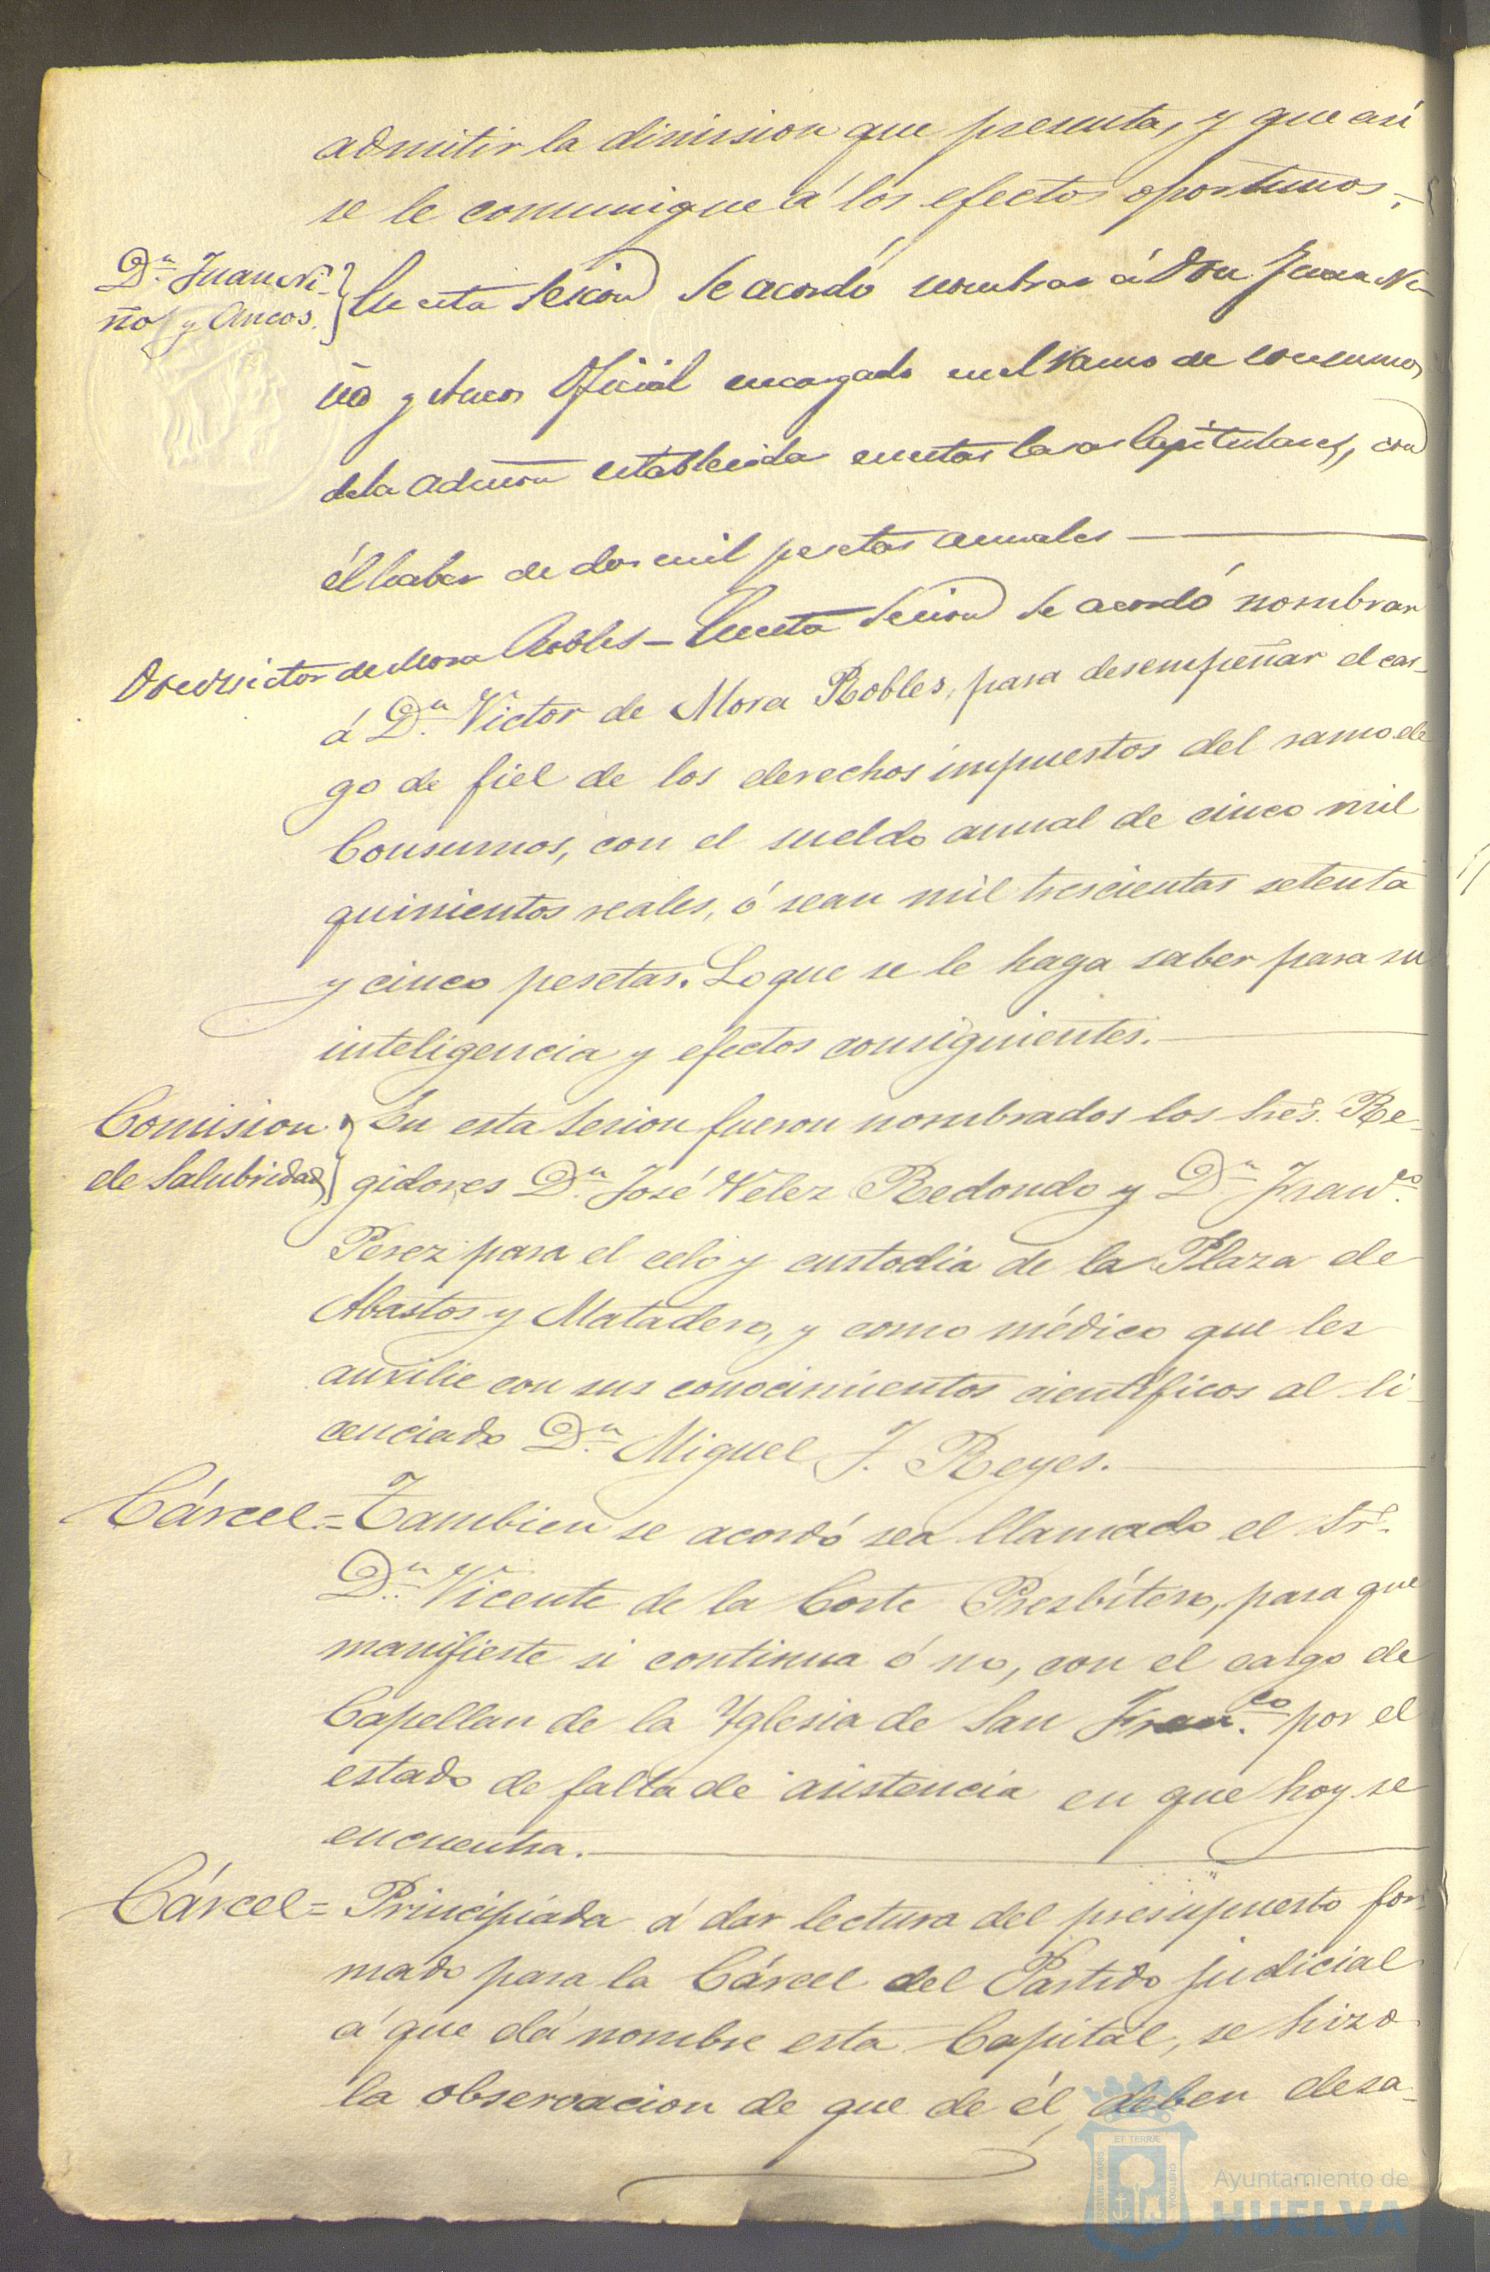 admitir la dimision que presenta, y que asi
se le comunique á los efectos oportunos.
Dn. Juan Ni-
ño y Ancos.
En esta Sesion se acordó nombrar á Don Juan Ni-
ño y Ancos Oficial encargado en el ramo de consumos
de la Admon establecida en estas Casas Capitulares, con
él haber de dos mil pesetas anuales
Don Victor de Mora Robles - En esta Sesion se acordó nombrar
á Dn. Victor de Mora Robles, para desempeñar el car-
go de fiel de los derechos impuestos del ramo de
Consumos, con el sueldo anual de cinco mil
quinientos reales, ó sean mil trescientas setenta
y cinco pesetas. Lo que se le haga saber para su
inteligencia y efectos consiguientes.
Comision
de Salubridad
En esta Sesion fueron nombrados los Sres. Re-
gidores Dn. José Velez Redondo y Dn. Franco.
Perez para el celo y custodia de la Plaza de
Abastos y Matadero, y como médico que les
auxilie con sus conocimientos científicos al li-
cenciado Dn. Miguel J. Reyes.
Cárcel = Tambien se acordó sea llamado el Sr.
Dn. Vicente de la Corte Presbítero, para que
manifieste si continua ó no, con el cargo de
Capellan de la Yglesia de San Franco. por el
estado de falta de asistencia en que hoy se
encuentra.
Cárcel = Principiada á dar lectura del presupuesto for-
mado para la Cárcel del Partido judicial
á que dá nombre esta Capital, se hizo
la observacion de que de él, deben desa-
ET TERRÆ
PORTUS MARIS
CUSTODIA
Ayuntamiento de
HUELVA